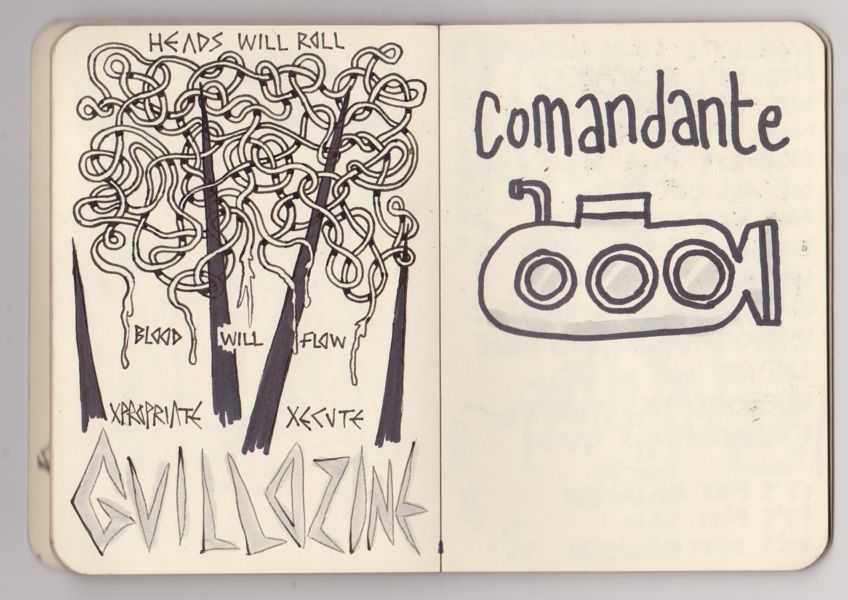 HEADS WILL ROLL
BLOOD WILL FLOW
XPROPRIATE XECUTE
GVILLOZINE
Comandante